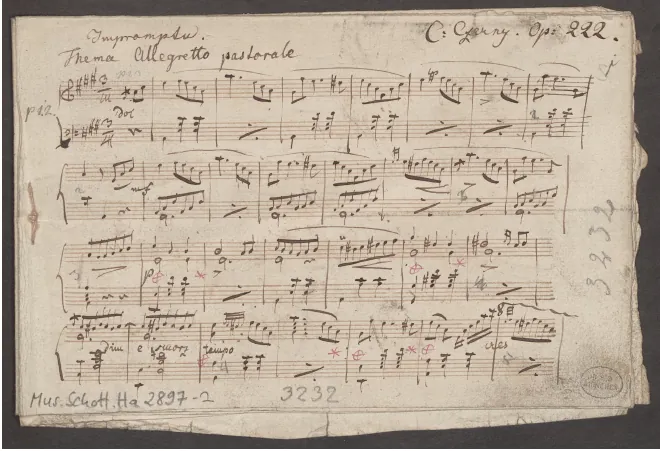 Impromptu. C: Czerny. Op: 222.
Thema Allegretto pastorale
Dol
p
dim e smorz tempo cres
3232
Mus. Schott. Ha 2897-2 3232